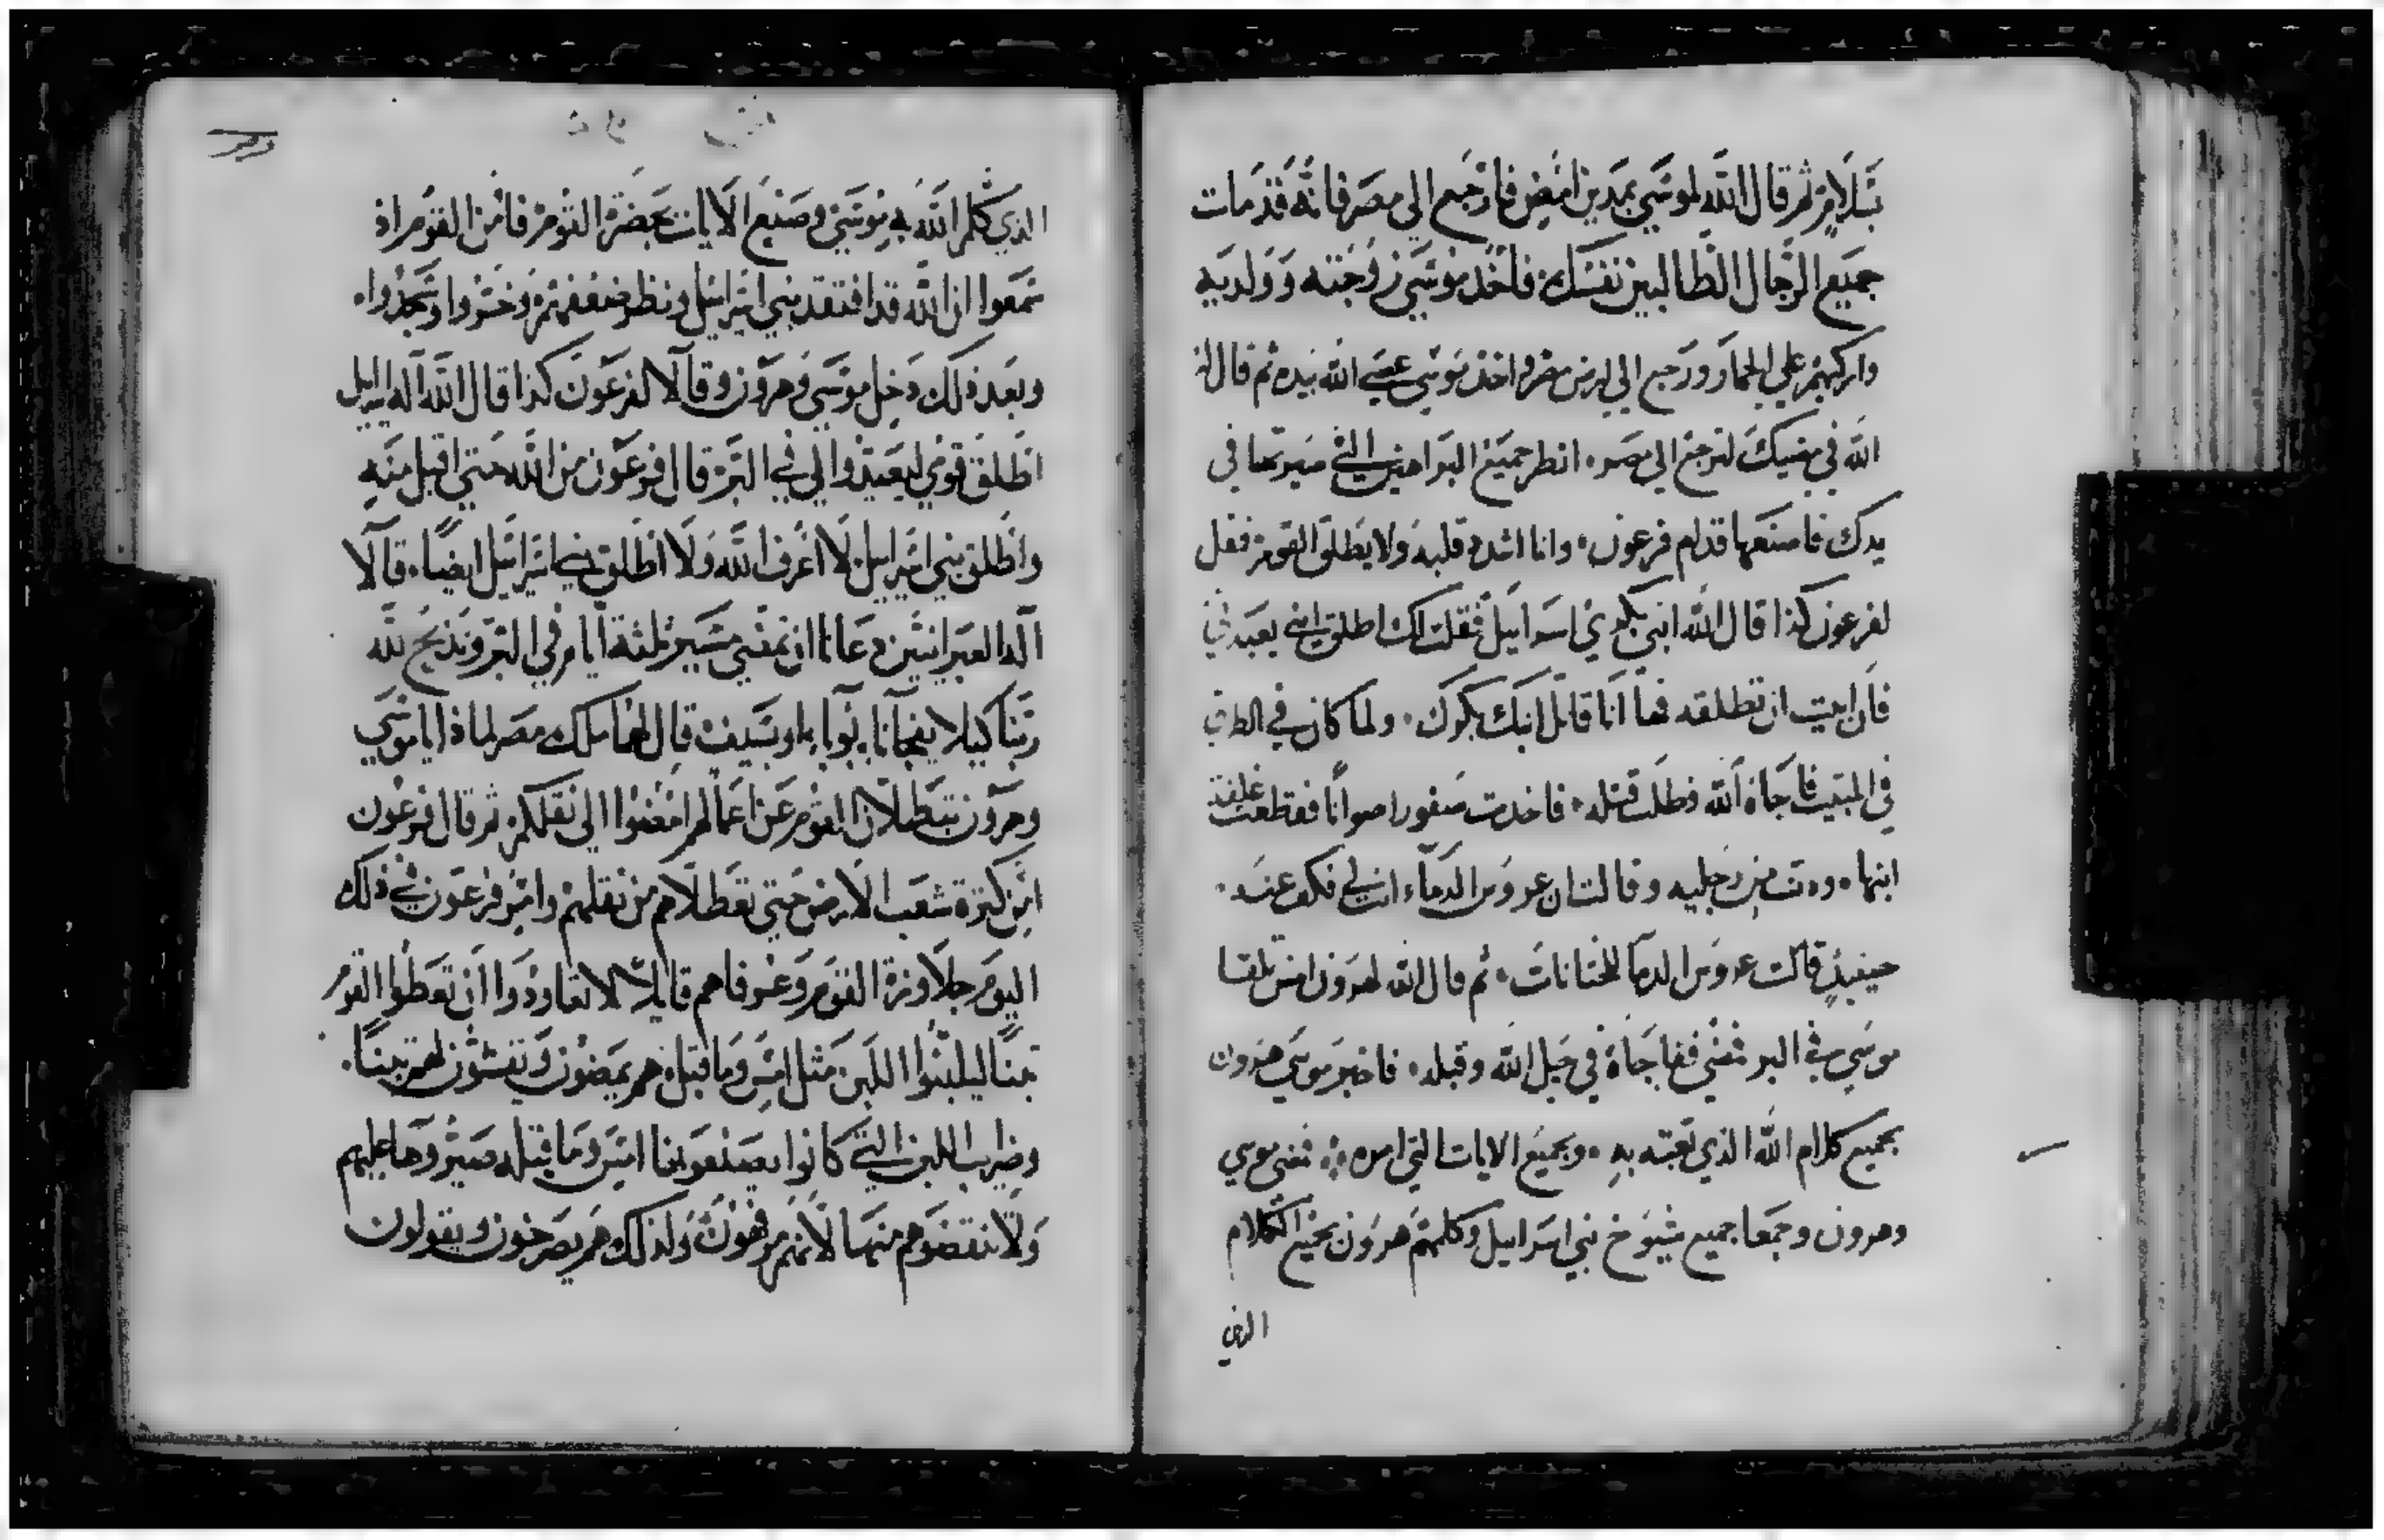 بسلام ثم قال الله لموسي بمدين امض فارجع الي مصر فانه قد مات
جميع الرجال الطالبين نفسك فاخذ موسي زوجته وولديه
واركبهم علي الحمار ورجع الي ارض مصر واخذ موسي عصي الله بيده ثم قال له
الله في مضيك لترجع الي مصر انظر جميع البراهين التي صيرتها في
يدك فاصنعها قدام فرعون وانا اشدد قلبه ولا يطلق القوم فقل
لفرعون كذا قال الله ابني بكري اسراييل فقلت لك اطلق ابني يعبدني
فان ابيت ان تطلقه فها انا قاتل ابنك بكرك ولما كان في الطريق
في المبيت فاجاه الله وطلب قتله فاخدت صفورا صوانا فقطعت غلفة
ابنها ودنت من رجليه وقالت ان عروس الدماء انت لي فكف عنه
حينيذ قالت عروس الدما للختانات ثم قال الله لهرون امض تلقا
موسي في البر فمضي ففاجاه في جبل الله وقبله فاخبر موسي هرون
بجميع كلام الله الذي بعثه به وبجميع الايات التي امره فمضي موسي
وهرون وجمعا جميع شيوخ بني اسراييل وكلمهم هرون بجميع الكلام
الذي
الذي كلم الله به موسي وصنع الايات بحضرة القوم فامن القوم اذ
سمعوا ان الله قد افتقد بني اسرائيل ونظر ضعفهم وخروا وسجدوا
وبعد ذلك دخل موسي وهرون وقالا لفرعون كذا قال الله اله اسراييل
اطلق قومي ليعيدوا لي في البر قال فرعون من الله حتي اقبل منه
واطلق بني اسراييل لا اعرف الله ولا اطلق بني اسرائيل ايضا قالا
اله العبرانيين دعانا ان نمضي مسير ثلثة ايام في البر ونذبح لله
ربنا كيلا يفجانا بوبا او بسيف قال لهما ملك مصر لماذا يا موسي
وهرون تبطلان القوم عن اعمالهم امضوا الي ثقلكم ثم قال فرعون
ان كثرة شعب الارض حتي تعطلاهم من ثقلهم وامر فرعون في ذلك
اليوم جلاوزة القوم وعرفاهم قايلا لا تعاودوا ان تعطوا القوم
تبنا ليلبنوا اللبن مثل امس وما قبله هم يمضون ويقشون لهم تبنا
وضراب اللبن التي كانوا يصنعونها امس وما قبله صيروها عليهم
ولا تنقضوهم منها لانهم مرفهون ولذلك هم يصرخون ويقولون